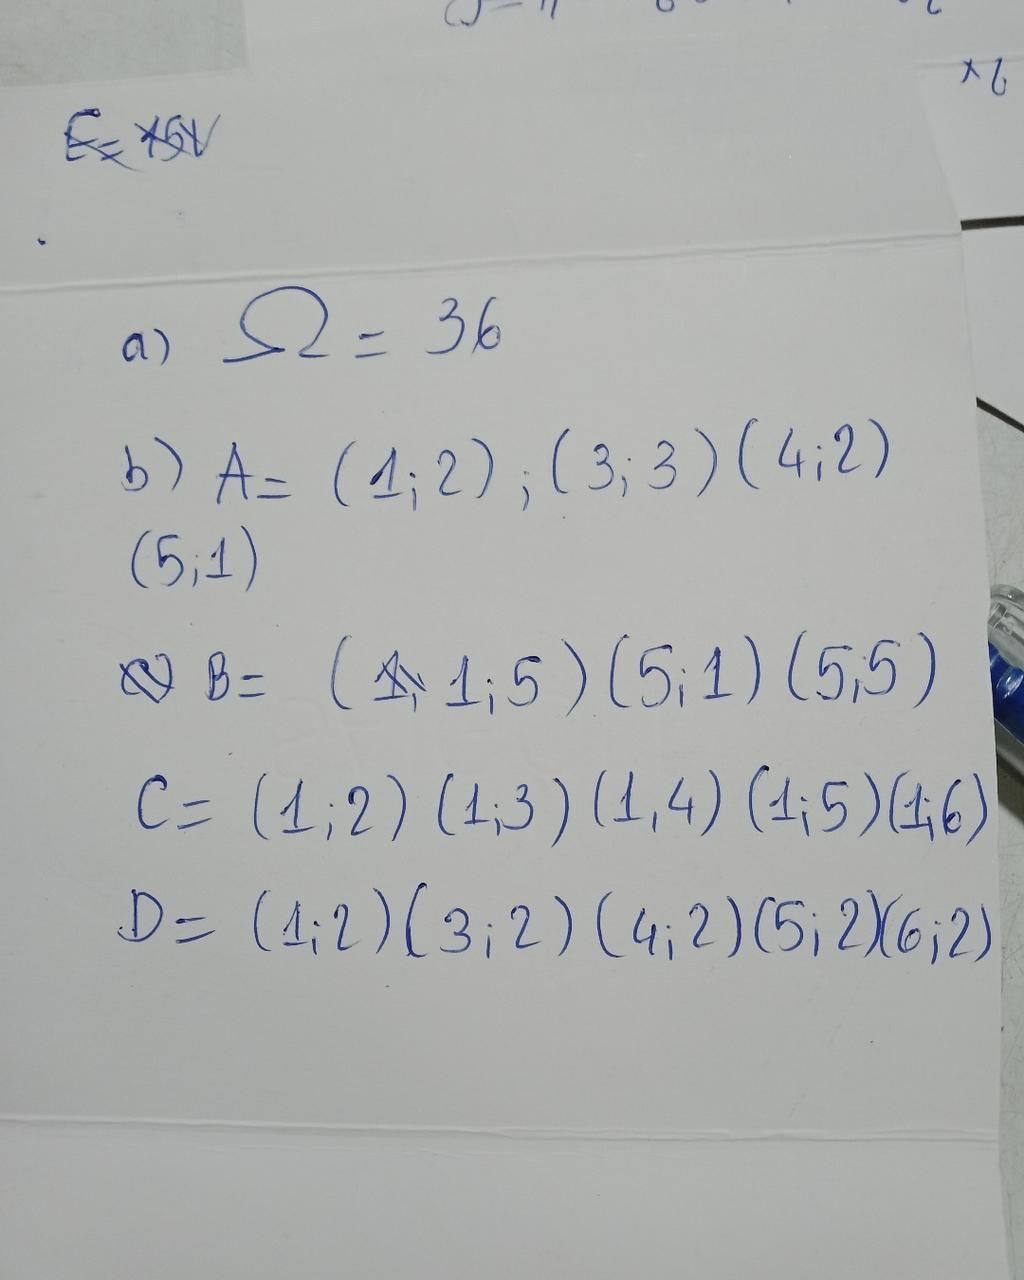 a) Ω = 36
b) A= (1;2) ; (3;3) (4;2)
(5;1)
B= (1;5) (5;1) (5;5)
C= (1;2) (1;3) (1,4) (1;5) (1;6)
D= (1;2) (3;2) (4;2) (5;2) (6;2)